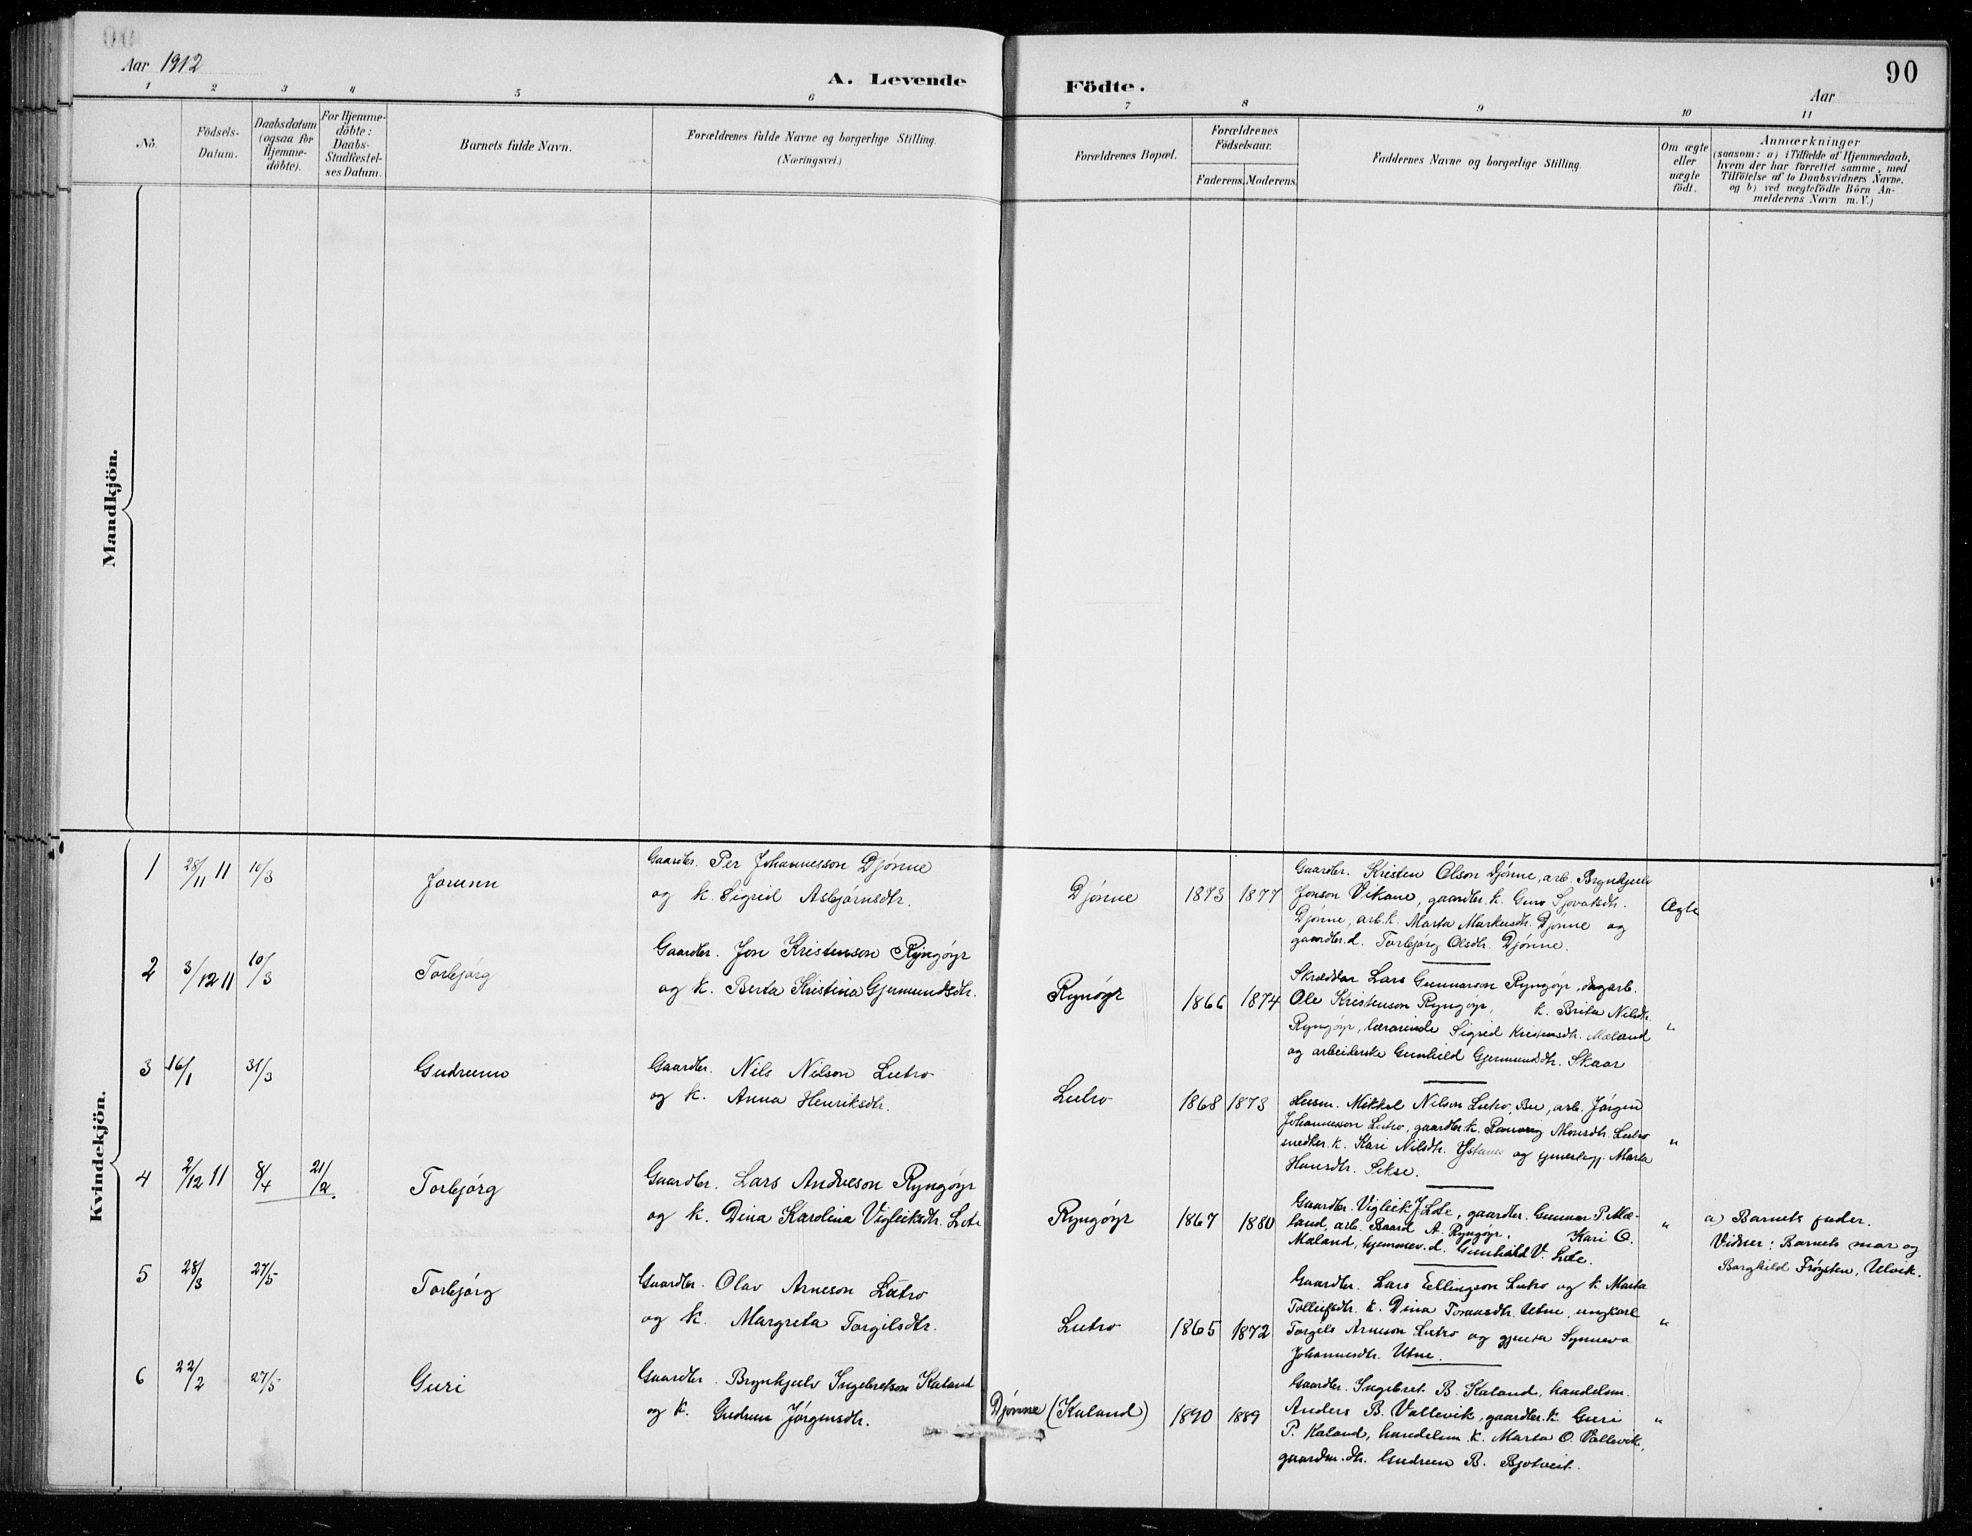 Aar 1912
A. Levende
Födte.
90
Aar
1 2 3 4 5 6 7 8 9 10 11
No.
Födsels-
Datum.
Daabsdatum
(ogsaa for
Hjemme-
döbte).
For Hjemme-
döbte:
Daabs-
Stadfæstel-
ses Datum.
Barnets fulde Navn.
Forældrenes fulde Navne og borgerlige Stilling.
(Næringsvei.)
Forældrenes Bopæl.
Forældrenes
Födselsaar.
Faderens. Moderens.
Faddernes Navne og borgerlige Stilling.
Om ægte
eller
uægte
födt.
Anmærkninger
(saasom: a) i Tilfælde af Hjemmedaab,
hvem der har forrettet samme, med
Tilföielse af to Daabsvidners Navne.
og b) ved uægtefödte Börn An-
melderens Navn m. V.)
Mandkjön.
Kvindekjön.
1 28/11 11 10/3
Jorunn
Gaardbr. Per Johannesson Djønne
og k. Sigrid Asbjørnsdtr.
Djønne 1873 1877
Gaardbr. Kristen Olson Djønne, arb. Brynkjulv
Jonson Vikane, gaardbr. k. Guro Sjovatsdtr.
Djønne, arb. k. Marta Markusdtr. Djønne og
gaardbr. d. Torbjørg Olsdtr. Djønne.
Ægte
2 3/12 11 10/3
Torbjørg
Gaardbr. Jon Kristenson Ryngøyr
og k. Berta Kristina Gjermundsdtr.
Rynøyr 1866 1874
Skræddar Lars Gunnarson Ryngøyr, dagarb.
Ole Kristenson Ryngøyr, k. Brita Nilsdtr.
Ryngøyr, lærarinde Sigrid Kristensdtr. Mæland
og arbeiderske Gunhild Gjermundsdtr. Skaar
"
3 16/1 31/3
Gudrunn
Gaardbr. Nils Nilson Lutro
og k. Anna Henriksdtr.
Lutro 1868 1873
Husm. Mikkel Nilson Lutro, Bu, arb. Jørgen
Johannesson Lutro, gaardbr. k. Ranveig Monsdtr. Lutro
snedker. k. Kari Nilsdtr. og Marta
Hansdtr. Sekse.
"
4 2/12 11 8/4 21/2.
Torbjørg
Gaardbr. Lars Andreson Ryngøyr
og k. Dina Karolina Vigleiksdtr. Lote
Ryngøyr 1867 1880
Gaardbr. Vigleik J. Lote, gaardbr. Gunnar P. Mæ-
land, arb. Baard A. Ryngøyr, Kari O.
Mæland, hjemmev. d. Gunhild V. Lote.
"
a) Barnets fader.
Vidner: Barnets mor og
Borghild Frøysten, Ulvik.
5 28/3 27/5
Torbjørg
Gaardbr. Olav Arneson Lutro
og k. Margreta Torgilsdtr.
Lutro 1865 1872
Gaardbr. Lars Ellingson Lutro og k. Marta
Tolleifsdtr. k. Dina Tomasdtr. Utne, ungkarl
Torgils Arneson Lutro og gjenta Synneva
Johannesdtr. Utne.
"
6 22/2 27/5
Guri
Gaardbr. Brynkjulv Ingebretson Kaland
og k. Gudrun Jørgensdtr.
Djønne (Kaland) 1890 1889
Gaardbr. Ingebret B. Kaland, handelsm.
Anders B. Vallevik, gaardbr. k. Guri
P. Kaland, handelsm. k. Marta O. Vallevik,
gaardm. dtr. Gudrun B. Bjotveit.
"